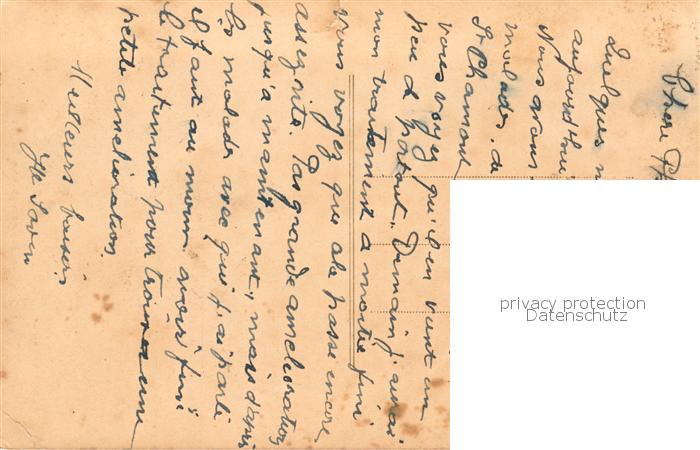 Chère
Quelques
aujourd'hui
Nous avons
malades, de
St Chamont
vous voyez qu'il en vient un
peu de partout, Demain j'aurai
mon traitement a moitié fini
vous voyez que cela passe encore
assez vite. Pas grande amelioration
jusqu'a maintenant, mais d'après
les malade avec qui j'ai parlé
il faut au moins avoir fini
le traitement pour trouver une
petite amelioration.
Meilleurs baisers
privacy protection
Datenschutz